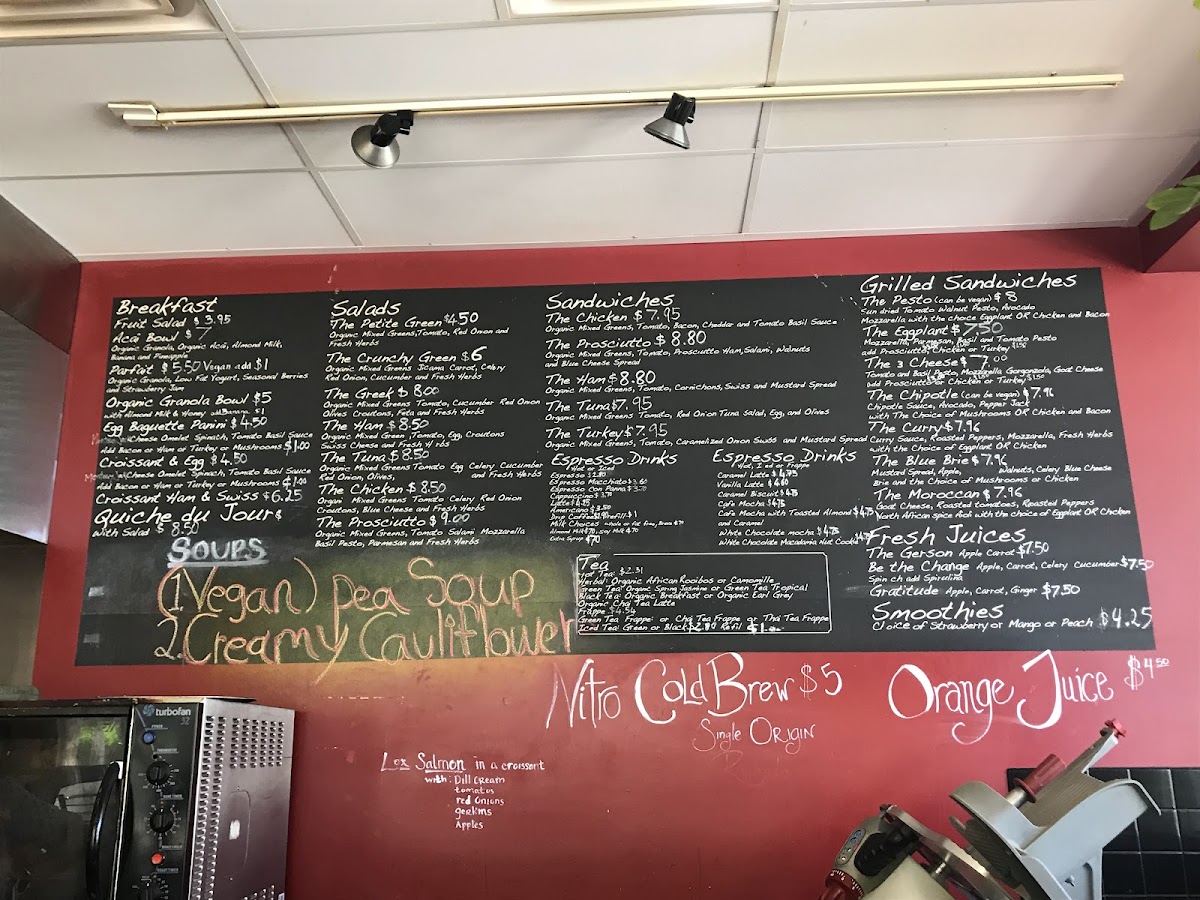 Breakfast
Fruit Salad $3.95
Acai Bowl $7
Organic Granola, Organic Acai, Almond Milk,
Banana and Pineapple
Parfait $5.50 Vegan add $1
Organic Granola, Low Fat Yogurt, Seasonal Berries
and Strawberry Jam
Organic Granola Bowl $5
with Almond Milk & Honey add Banana $1
Egg Baguette Panini $4.50
Cheese Omelet Spinach, Tomato Basil Sauce
Add Bacon or Ham or Turkey or Mushrooms $1.00
Croissant & Egg $4.50
Cheese Omelet, Spinach, Tomato Basil Sauce
Add Bacon or Ham or Turkey or Mushrooms $1.00
Croissant Ham & Swiss $6.25
Quiche du Jour $
with Salad $8.50
SOUPS
(1.Vegan) pea Soup
2. Creamy Cauliflower
Salads
The Petite Green $4.50
Organic Mixed Greens, Tomato, Red Onion and
Fresh Herbs
The Crunchy Green $6
Organic Mixed Greens Jicama Carrot, Celery
Red Onion, Cucumber and Fresh Herbs
The Greek $8.00
Organic Mixed Greens Tomato, Cucumber Red Onion
Olives Croutons, Feta and Fresh Herbs
The Ham $8.50
Organic Mixed Green, Tomato, Egg, Croutons
Swiss Cheese and Fresh Herbs
The Tuna $8.50
Organic Mixed Greens Tomato Egg Celery Cucumber
Red Onion, Olives, and Fresh Herbs
The Chicken $8.50
Organic Mixed Greens Tomato Celery Red Onion
Croutons, Blue Cheese and Fresh Herbs
The Prosciutto $9.00
Organic Mixed Greens, Tomato Salami Mozzarella
Basil Pesto, Parmesan and Fresh Herbs
Sandwiches
The Chicken $7.95
Organic Mixed Greens, Tomato, Bacon, Cheddar and Tomato Basil Sauce
The Prosciutto $8.80
Organic Mixed Greens, Tomato, Prosciutto Ham, Salami, Walnuts
and Blue Cheese Spread
The Ham $8.80
Organic Mixed Greens, Tomato, Cornichons, Swiss and Mustard Spread
The Tuna $7.95
Organic Mixed Greens, Tomato, Red Onion Tuna Salad, Egg, and Olives
The Turkey $7.95
Organic Mixed Greens, Tomato, Caramelized Onion Swiss and Mustard Spread
Espresso Drinks
Hot or Iced
Espresso $2.80
Espresso Macchiato $3.60
Espresso con Panna $3.70
Cappuccino $3.70
Latte $4.15
Americano $3.50
Drip Coffee
Milk Choices whole or fat free,
Almond Milk $.70, Soy Milk $.70
Extra Syrup $.70
Espresso Drinks
Hot, Iced or Frappe
Caramel Latte $4.75
Vanilla Latte $4.60
Caramel Biscuit $4.75
Cafe Mocha $4.75
Cafe Mocha with Toasted Almond $4.75
and Caramel
White Chocolate Mocha $4.75
White Chocolate Macadamia Nut Cookie
Tea
Hot Tea: $2.31
Herbal: Organic African Rooibos or Camomille
Green Tea: Organic Spring Jasmine or Green Tea Tropical
Black Tea: Organic Breakfast or Organic Earl Grey
Organic Chai Tea Latte
Frappe $4.54
Green Tea Frappe: or Chai Tea Frappe or Thai Tea Frappe
Iced Tea: Green or Black $2.80 Refil
Grilled Sandwiches
The Pesto (can be vegan) $8
Sun dried Tomato Walnut Pesto, Avocado
Mozzarella with the choice Eggplant OR Chicken and Bacon
The Eggplant $7.50
Mozzarella, Parmesan, Basil and Tomato Pesto
add Prosciutto, Chicken or Turkey
The 3 Cheese $7.00
Tomato and Basil Pesto, Mozzarella Gorgonzola, Goat Cheese
add Prosciutto or Chicken or Turkey
The Chipotle (can be vegan) $7.96
Chipotle Sauce, Avocado, Pepper Jack
with The Choice of Mushrooms OR Chicken and Bacon
The Curry $7.96
Curry Sauce, Roasted Peppers, Mozzarella, Fresh Herbs
with the Choice of Eggplant OR Chicken
The Blue Brie $7.96
Mustard Spread, Apple, Walnuts, Celery Blue Cheese
Brie and the Choice of Mushrooms or Chicken
The Moroccan $7.96
Goat Cheese, Roasted tomatoes, Roasted Peppers
North African spice Rub with the choice of Eggplant OR Chicken
Fresh Juices
The Gerson Apple Carrot $7.50
Be the Change Apple, Carrot, Celery Cucumber $7.50
Spinach add Spirulina
Gratitude Apple, Carrot, Ginger $7.50
Smoothies $4.25
Choice of Strawberry or Mango or Peach
Nitro Cold Brew $5
Single Origin
Orange Juice $4.50
Lox Salmon in a croissant
with: Dill Cream
tomatos
red Onions
gerkins
Apples
turbofan
32